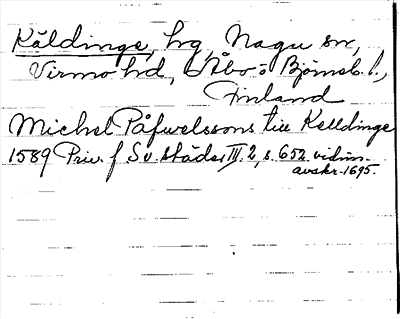 Käldinge, hg, Nagu sn,
Virmo hd, Åbo o Björneb. l.,
Finland
Michel Påfwelssons till Kelldinge
1589 Priv. f Sv. städer III. 2, s. 652 vidim.
avskr. 1695.